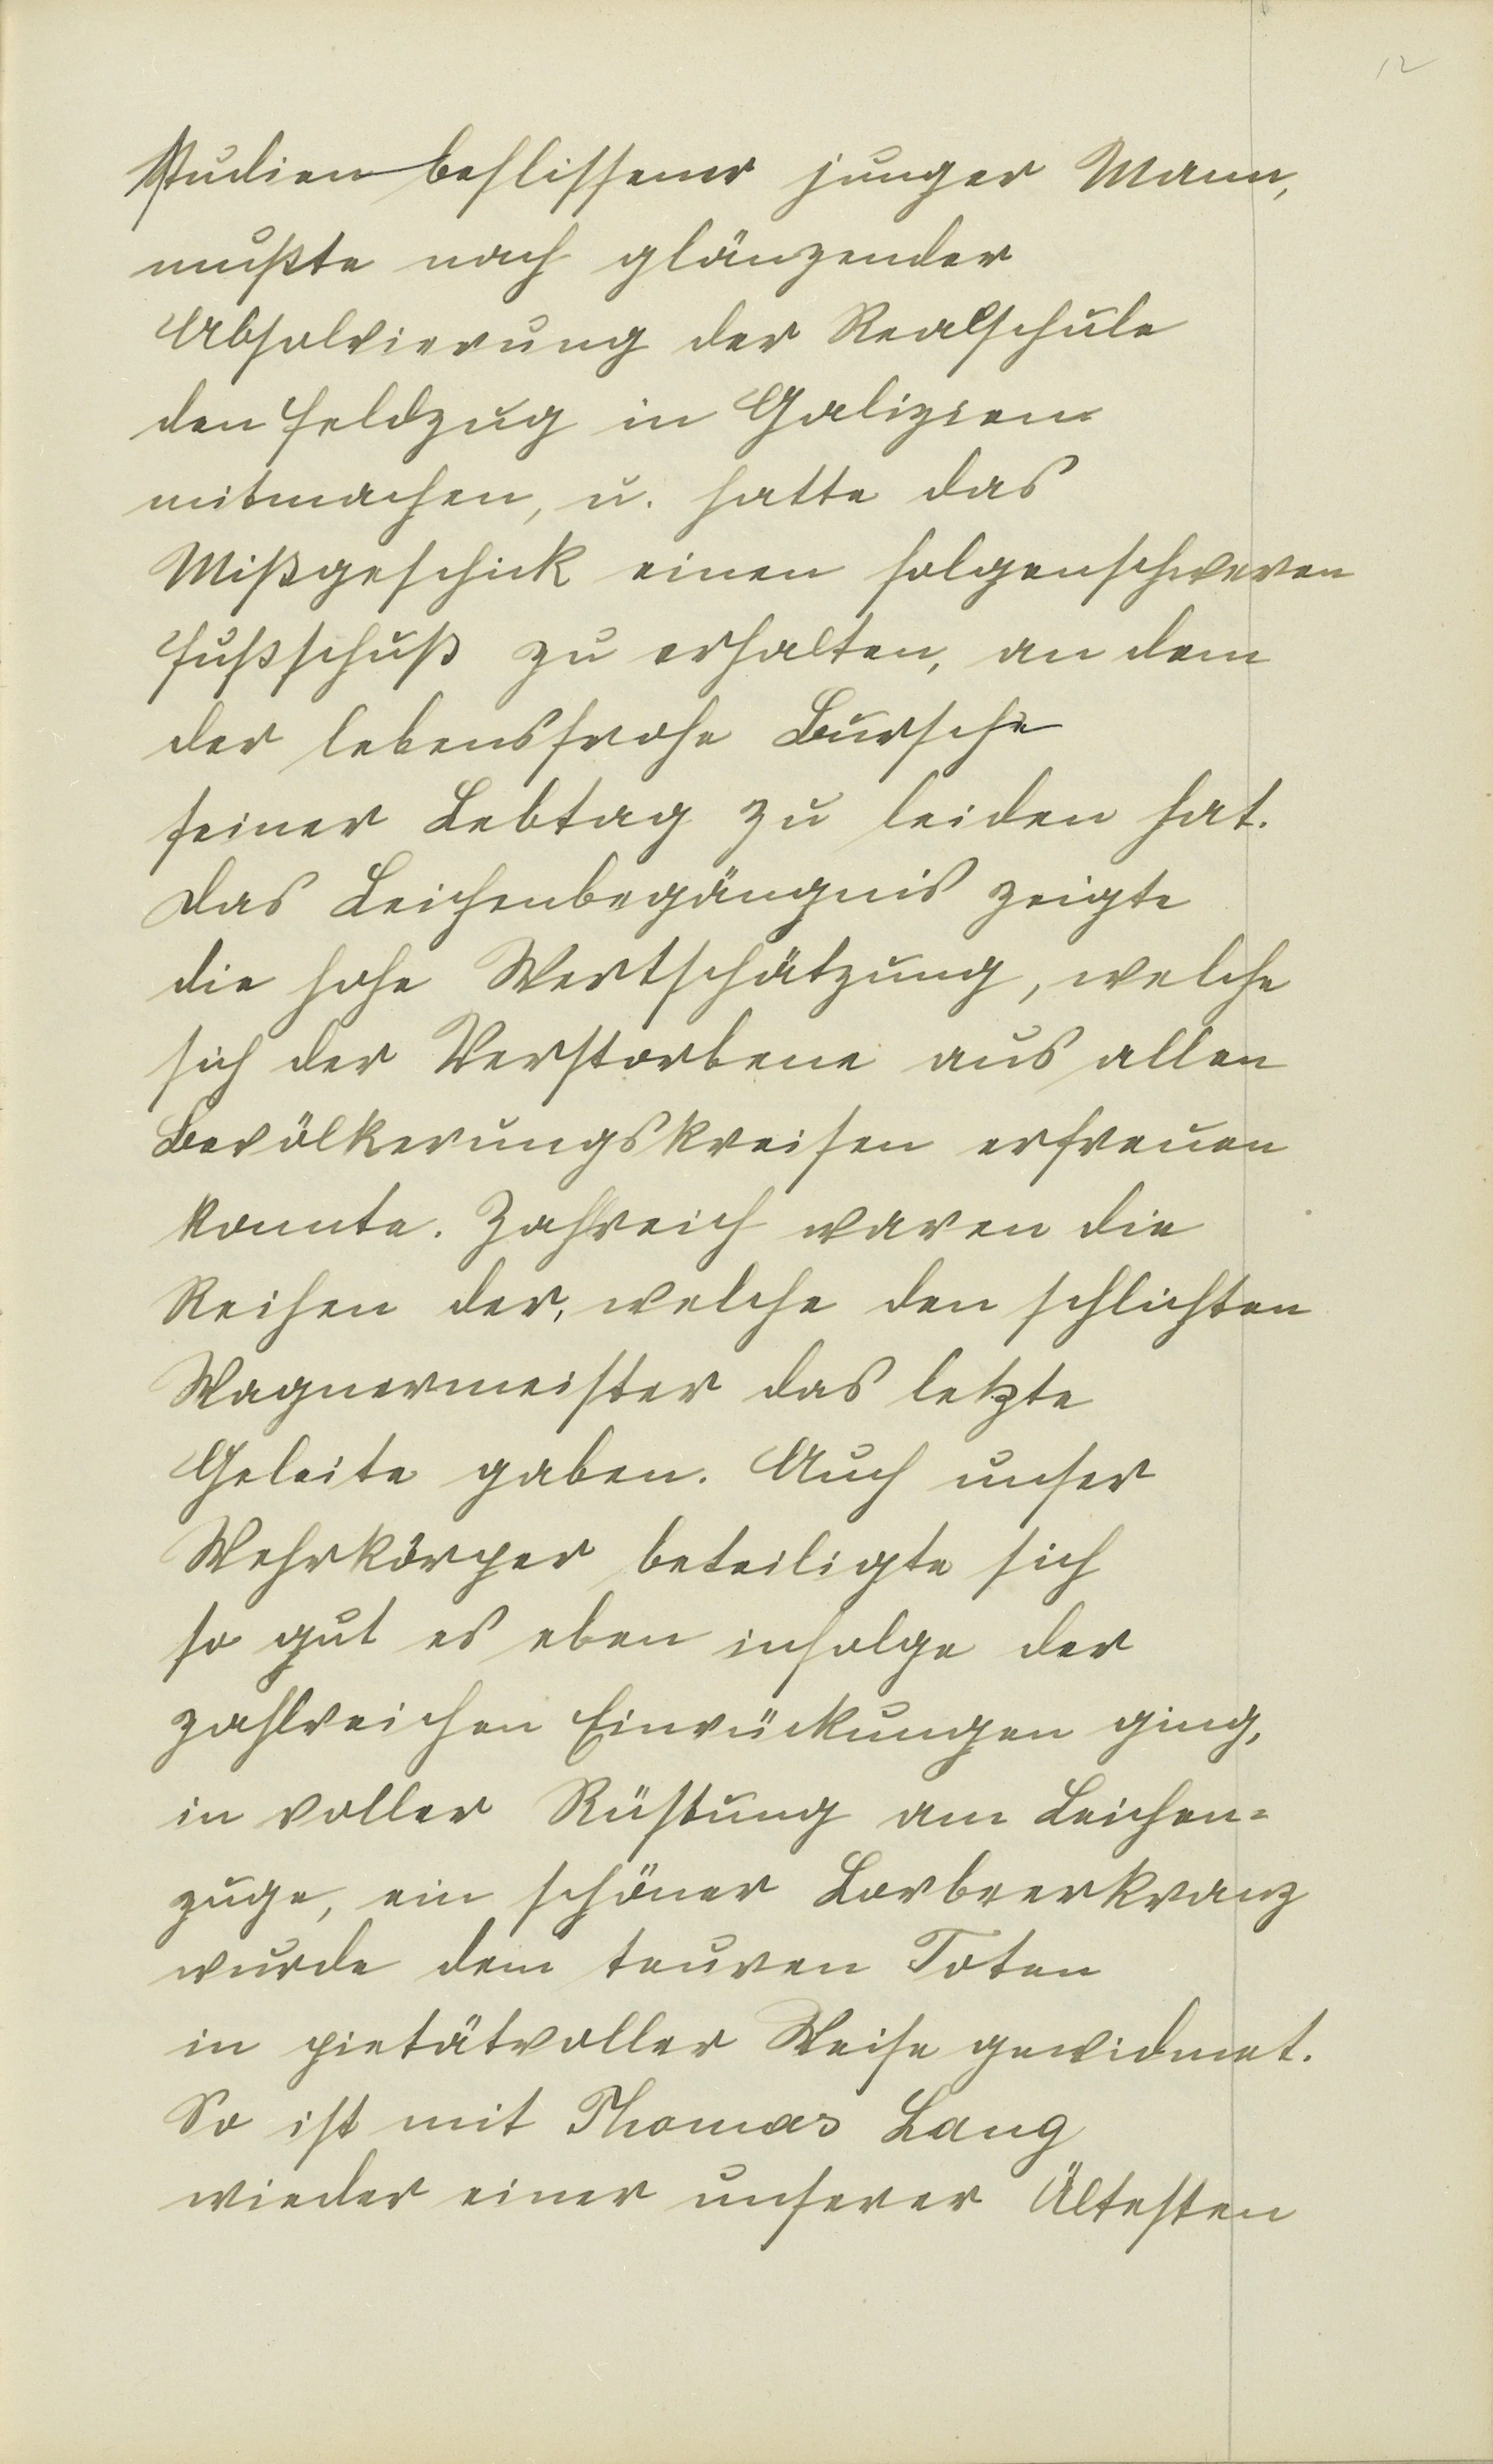 12
Studien beflissener junger Mann,
mußte nach glänzender
Absolvierung der Realschule
den Feldzug in Galizien
mitmachen, u. hatte das
Mißgeschick einen folgenschweren
Fußschuß zu erhalten, an dem
der lebensfrohe Bursche
seiner Lebtag zu leiden hat.
Das Leichenbegängnis zeigte
die hohe Wertschätzung, welche
sich der Verstorbene aus allen
Bevölkerungskreisen erfreuen
konnte. Zahlreich waren die
Reihen der, welche den schlichten
Wagnermeister das letzte
Geleite gaben. Auch unser
Wehrkörper beteiligte sich
so gut es eben infolge der
zahlreichen Einrückungen ging,
in voller Rüstung am Leichen=
zuge, ein schöner Lorbeerkranz
wurde dem teuren Toten
in pietätvoller Weise gewidmet.
So ist mit Thomas Lang
wieder einer unserer Ältesten